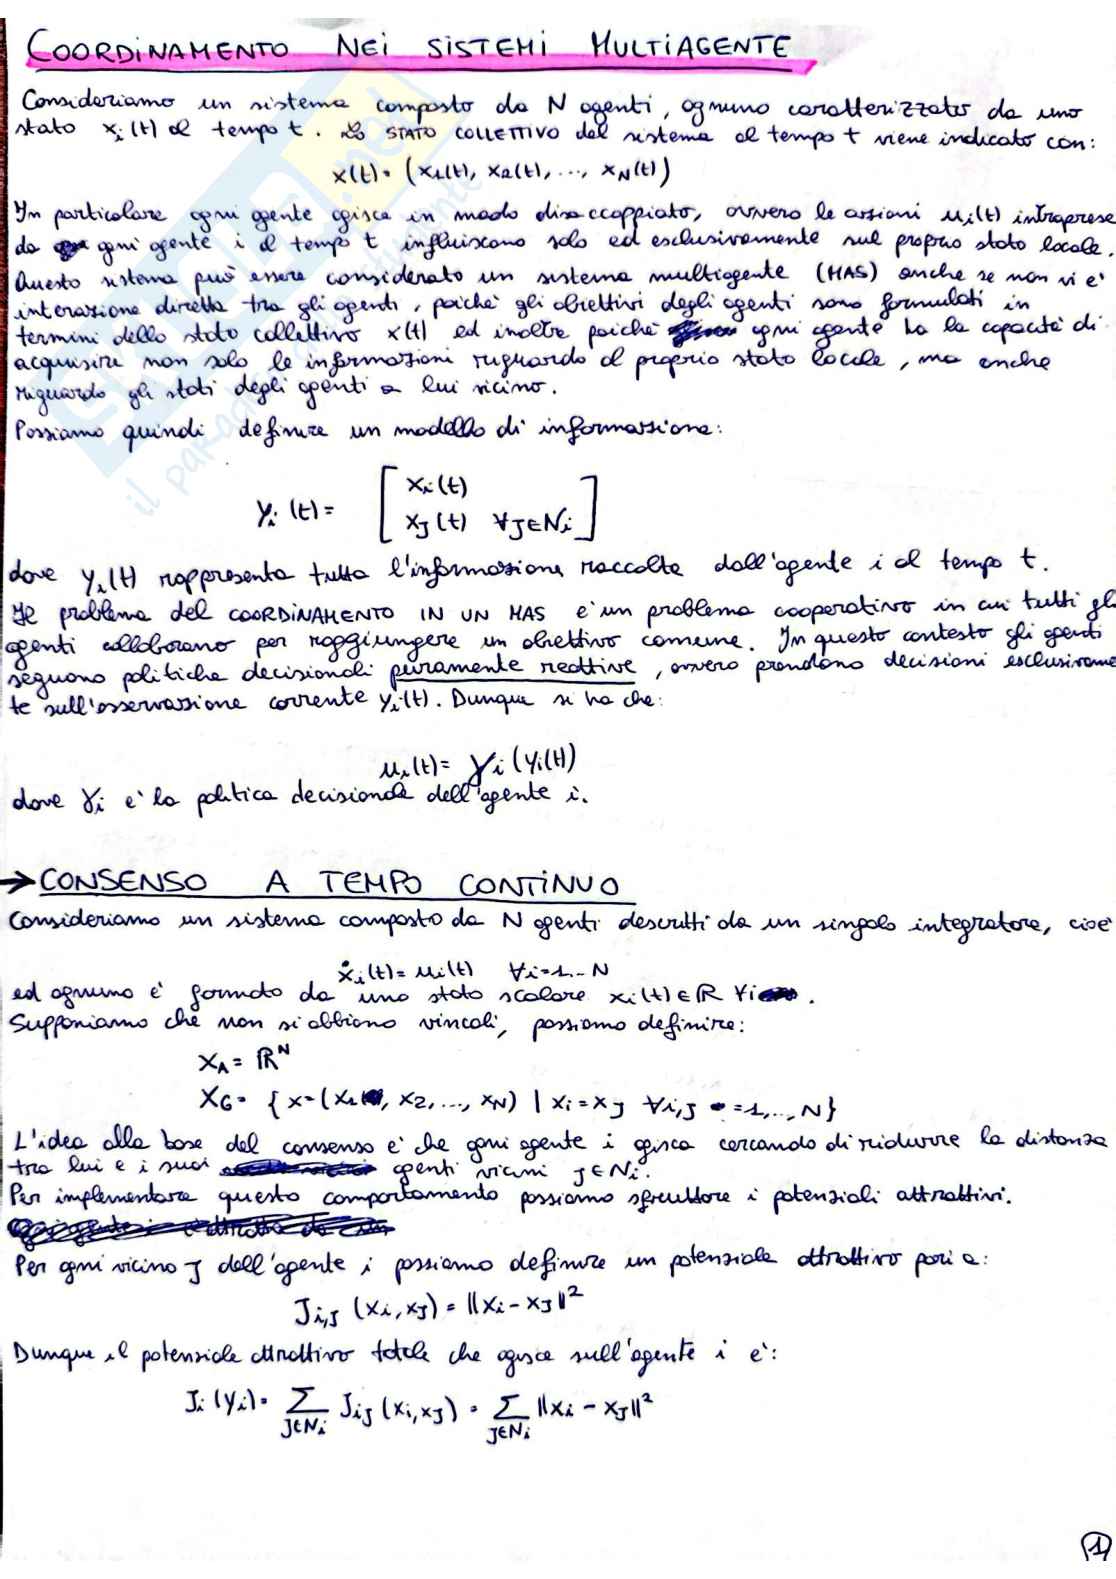 COORDINAMENTO NEI SISTEMI MULTIAGENTE
Consideriamo un sistema composto da N agenti, ognuno caratterizzato da uno
stato xi(t) al tempo t. Lo STATO COLLETTIVO del sistema al tempo t viene indicato con:
x(t) = (x1(t), x2(t), ..., xN(t))
In particolare ogni agente agisce in modo disaccoppiato, ovvero le azioni ui(t) intraprese
da ogni agente i al tempo t influiscono solo ed esclusivamente sul proprio stato locale.
Questo sistema può essere considerato un sistema multiagente (MAS) anche se non vi e'
interazione diretta tra gli agenti, poiche' gli obiettivi degli agenti sono formulati in
termini dello stato collettivo x(t) ed inoltre poiche' ogni agente ha la capacità di
acquisire non solo le informazioni riguardo al proprio stato locale, ma anche
riguardo gli stati degli agenti a lui vicino.
Possiamo quindi definire un modello di informazione:
yi(t) = [ xi(t)
xJ(t) ∀J∈Ni ]
dove yi(t) rappresenta tutta l'informazione raccolta dall'agente i al tempo t.
Il problema del COORDINAMENTO IN UN MAS e' un problema cooperativo in cui tutti gli
agenti collaborano per raggiungere un obiettivo comune. In questo contesto gli agenti
seguono politiche decisionali puramente reattive, ovvero prendono decisioni esclusivame
te sull'osservazione corrente yi(t). Dunque si ha che:
ui(t) = γi(yi(t))
dove γi e' la politica decisionale dell'agente i.
→ CONSENSO A TEMPO CONTINUO
Consideriamo un sistema composto da N agenti descritti da un singolo integratore, cioe'
ẋi(t) = ui(t) ∀i=1..N
ed ognuno e' formato da uno stato scalare xi(t)∈ℝ ∀i.
Supponiamo che non si abbiano vincoli, possiamo definire:
XA = ℝ^N
XG = { x=(x1, x2, ..., xN) | xi = xJ ∀i,J =1,...,N}
L'idea alla base del consenso e' che ogni agente i agisca cercando di ridurre la distanza
tra lui e i suoi agenti vicini J∈Ni.
Per implementare questo comportamento possiamo sfruttare i potenziali attrattivi.
Per ogni vicino J dell'agente i possiamo definire un potenziale attrattivo pari a:
Ji,J (xi,xJ) = ||xi - xJ||²
Dunque il potenziale attrattivo totale che agisce sull'agente i e':
Ji(yi) = ∑J∈Ni JiJ(xi,xJ) = ∑J∈Ni ||xi - xJ||²
1